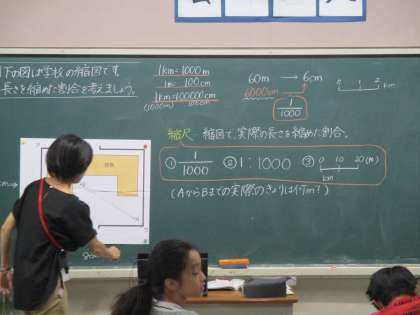 下の図は学校の縮図です。
長さを縮めた割合を考えましょう。
1km=1000m
1m=100cm
1km=100000cm
(1000m)
60m → 6cm
6000cm
1/1000
0 1 2
km
縮尺…縮図で、実際の長さを縮めた割合。
① 1/1000 ② 1:1000 ③ 0 10 20(m)
km
(AからBまでの実際のきょりは何m?)